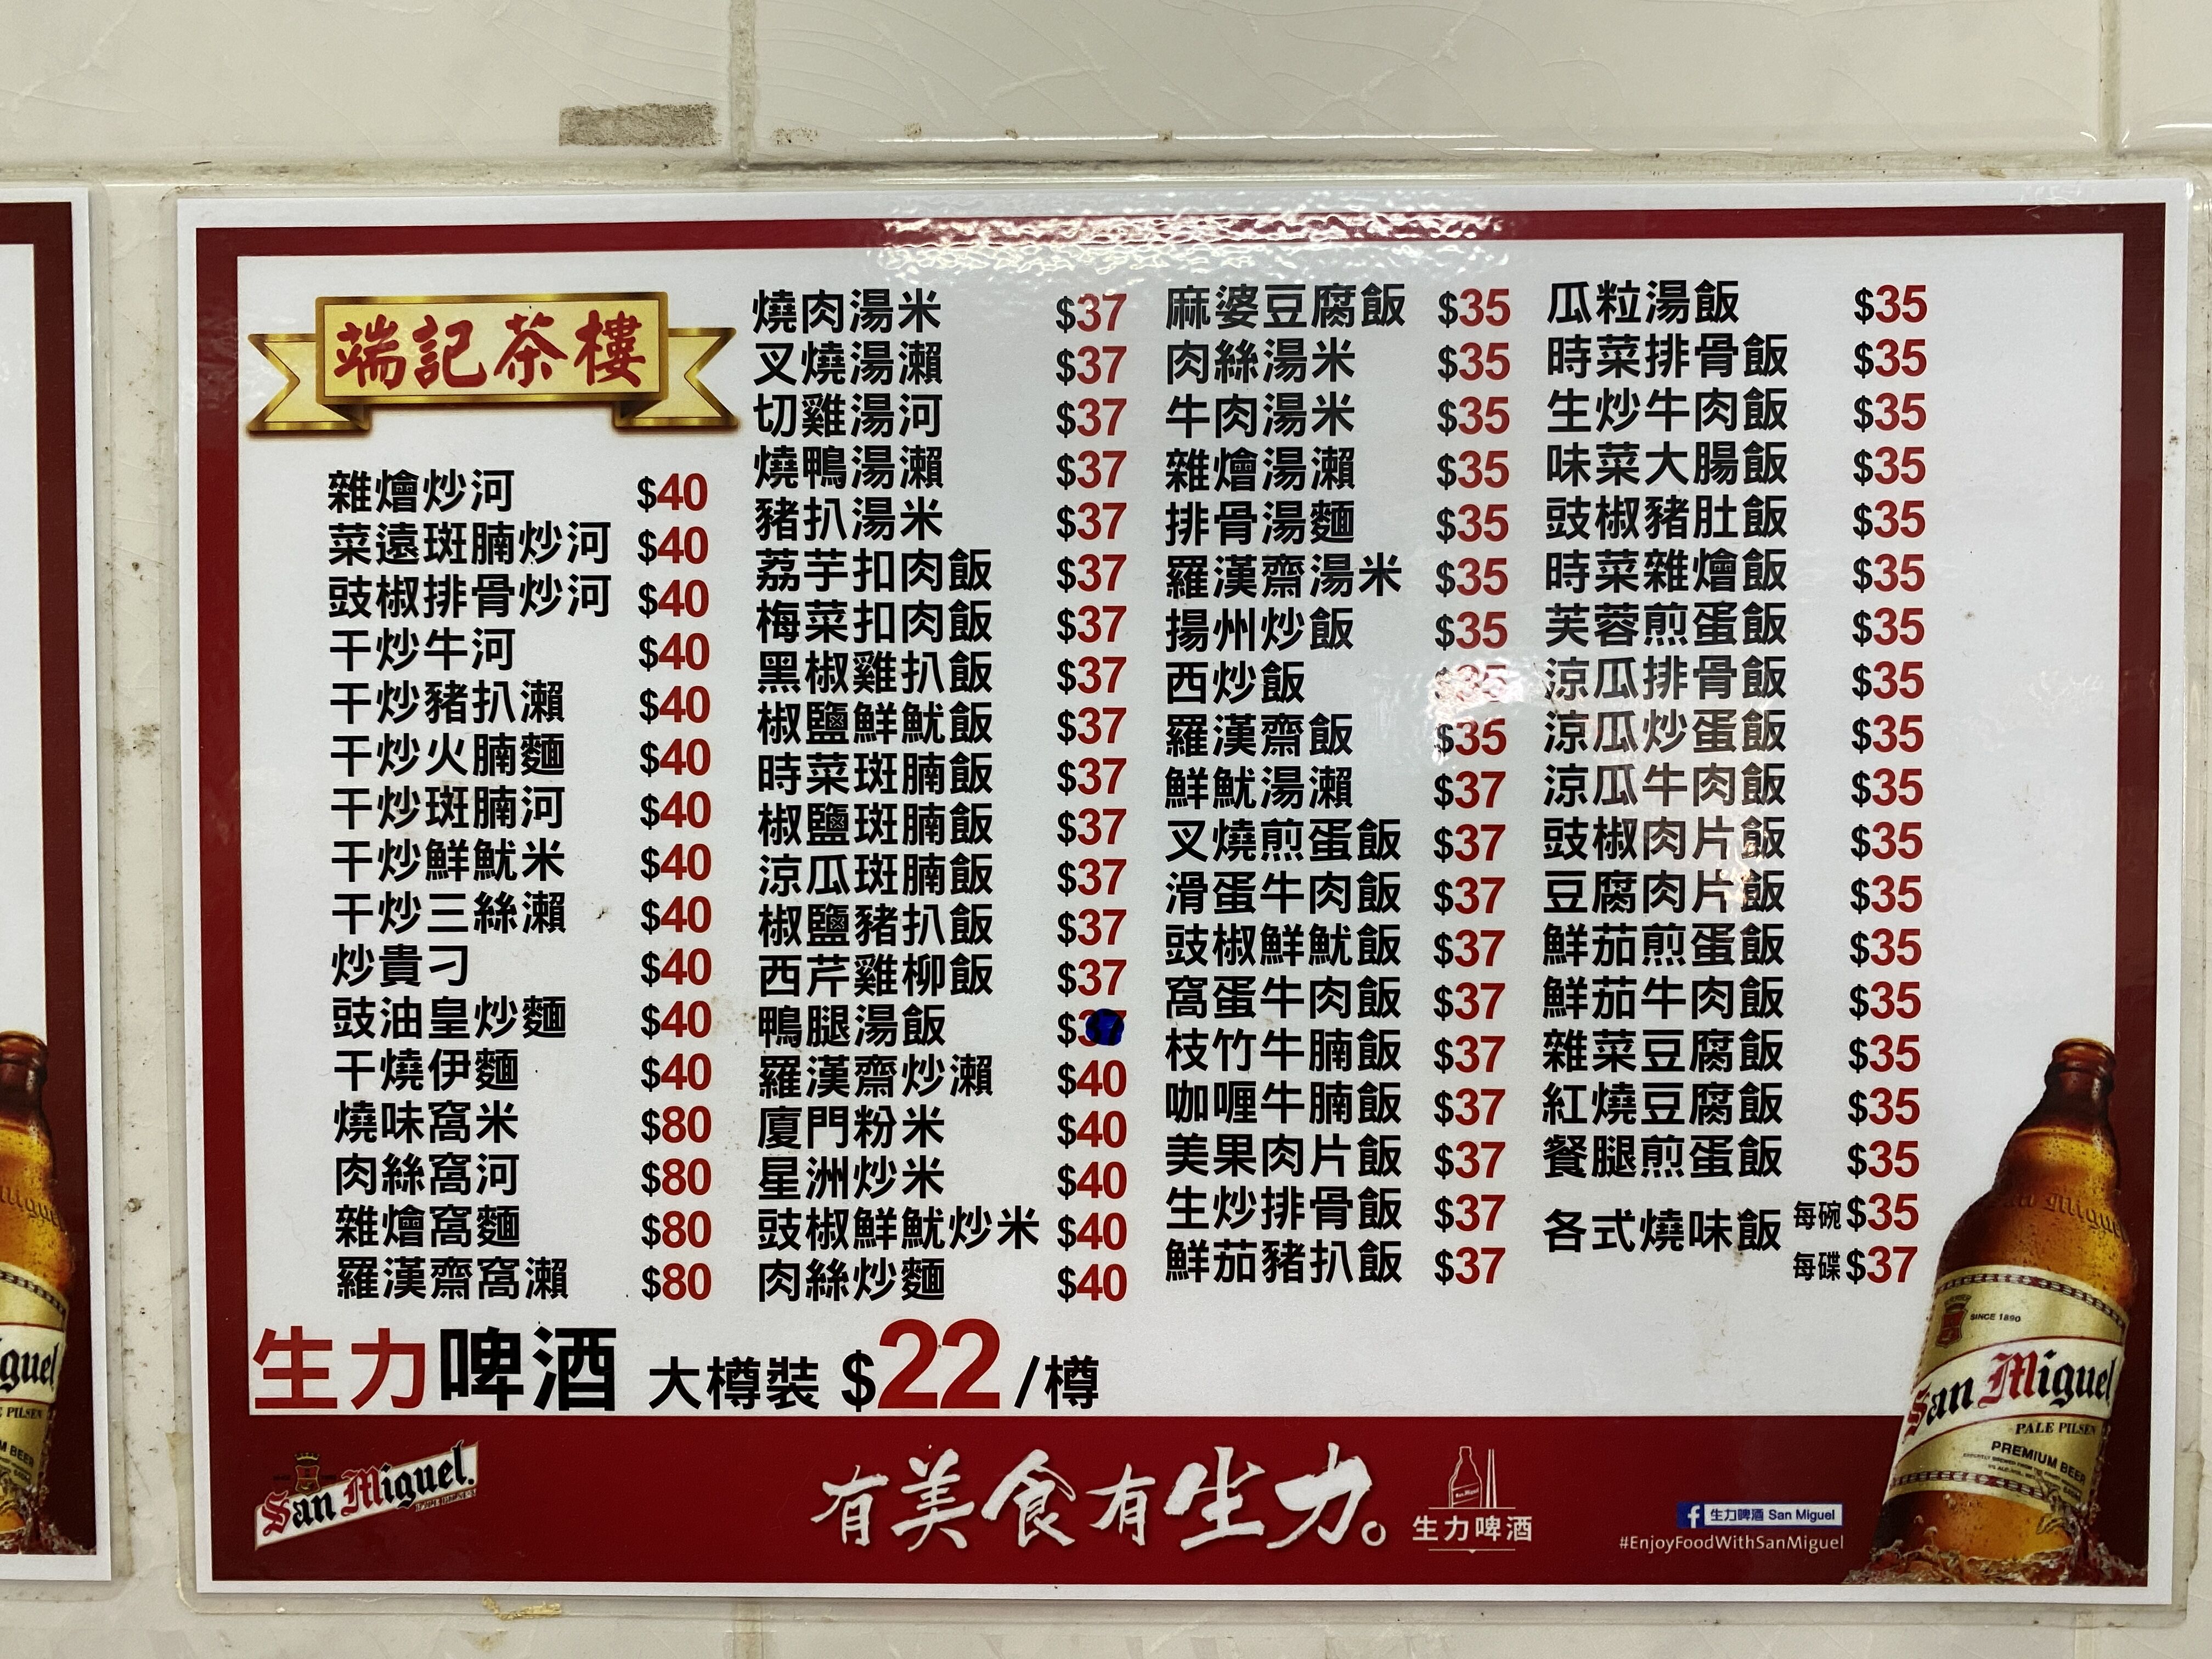 端記茶樓
雜燴炒河 $40
菜遠斑腩炒河 $40
豉椒排骨炒河 $40
干炒牛河 $40
干炒豬扒瀨 $40
干炒火腩麵 $40
干炒斑腩河 $40
干炒鮮魷米 $40
干炒三絲瀨 $40
炒貴刁 $40
豉油皇炒麵 $40
干燒伊麵 $40
燒味窩米 $80
肉絲窩河 $80
雜燴窩麵 $80
羅漢齋窩瀨 $80
燒肉湯米 $37
叉燒湯瀨 $37
切雞湯河 $37
燒鴨湯瀨 $37
豬扒湯米 $37
荔芋扣肉飯 $37
梅菜扣肉飯 $37
黑椒雞扒飯 $37
椒鹽鮮魷飯 $37
時菜斑腩飯 $37
椒鹽斑腩飯 $37
涼瓜斑腩飯 $37
椒鹽豬扒飯 $37
西芹雞柳飯 $37
鴨腿湯飯 $37
羅漢齋炒瀨 $40
廈門粉米 $40
星洲炒米 $40
豉椒鮮魷炒米 $40
肉絲炒麵 $40
麻婆豆腐飯 $35
肉絲湯米 $35
牛肉湯米 $35
雜燴湯瀨 $35
排骨湯麵 $35
羅漢齋湯米 $35
揚州炒飯 $35
西炒飯 $35
羅漢齋飯 $35
鮮魷湯瀨 $37
叉燒煎蛋飯 $37
滑蛋牛肉飯 $37
豉椒鮮魷飯 $37
窩蛋牛肉飯 $37
枝竹牛腩飯 $37
咖喱牛腩飯 $37
美果肉片飯 $37
生炒排骨飯 $37
鮮茄豬扒飯 $37
瓜粒湯飯 $35
時菜排骨飯 $35
生炒牛肉飯 $35
味菜大腸飯 $35
豉椒豬肚飯 $35
時菜雜燴飯 $35
芙蓉煎蛋飯 $35
涼瓜排骨飯 $35
涼瓜炒蛋飯 $35
涼瓜牛肉飯 $35
豉椒肉片飯 $35
豆腐肉片飯 $35
鮮茄煎蛋飯 $35
鮮茄牛肉飯 $35
雜菜豆腐飯 $35
紅燒豆腐飯 $35
餐腿煎蛋飯 $35
各式燒味飯 每碗 $35
每碟 $37
生力啤酒 大樽裝 $22 /樽
San Miguel
有美食有生力。
生力啤酒
生力啤酒 San Miguel
#EnjoyFoodWithSanMiguel
SINCE 1890
San Miguel
PALE PILSEN
PREMIUM BEER